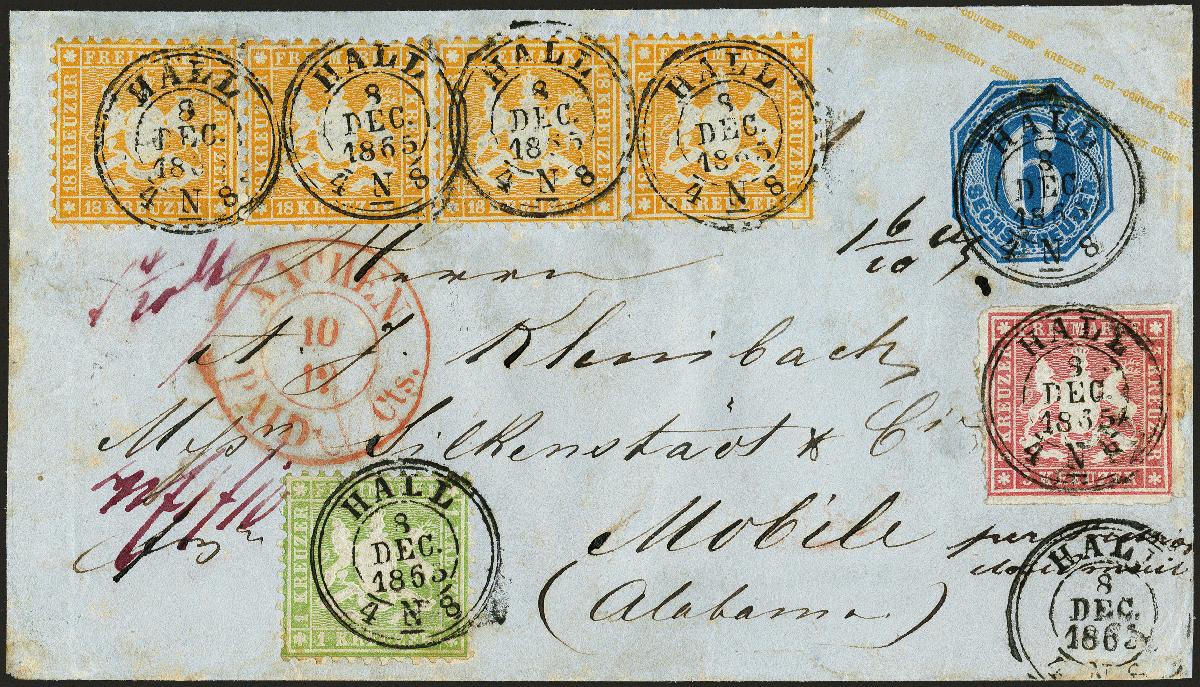 POST-COUVERT SECHS KREUZER POST-COUVERT SECHS
FREIMARKE
18 KREUZER
18 KREUZER
18 KREUZER
HALL
8
DEC.
4 N 8
FREIMARKE
18 KREUZER
HALL
8
DEC.
1865
4 N 8
FREIMARKE
18 KREUZER
HALL
8
DEC.
1865
4 N 8
FREIMARKE
18 KREUZER
HALL
8
DEC.
1865
4 N 8
6
SECHS KREUZER
HALL
8
DEC
1865
4 N 8
Herrn
AACHEN
10
12
PAID
Cts.
A. J. Kleinbach
Messrs Silkenstadt & Cie
Mobile
(Alabama)
FREIMARKE
KREUZER
HALL
8
DEC.
1865
4 N 8
KREUZER
1 KREUZER
HALL
8
DEC.
1865
4 N 8
per
HALL
8
DEC.
1865